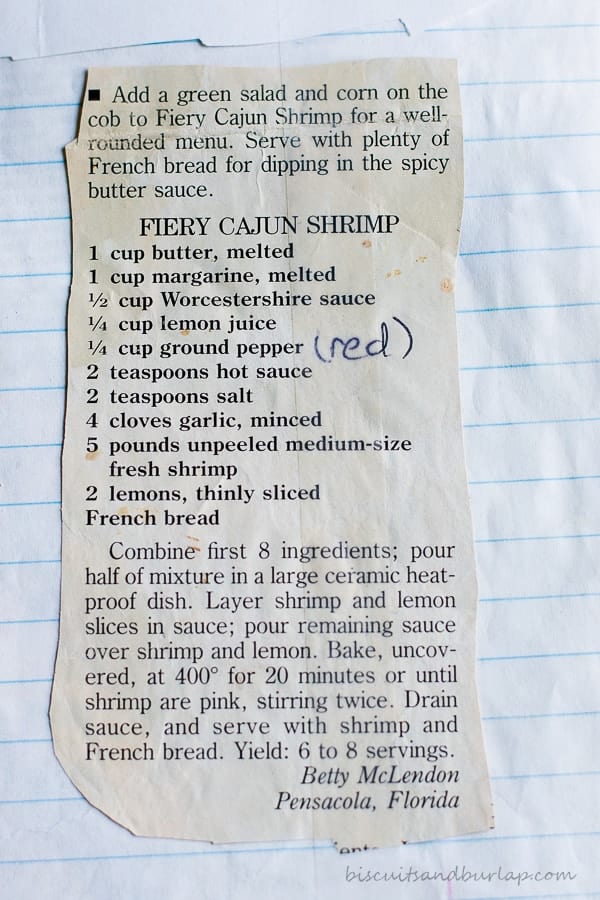 ■ Add a green salad and corn on the
cob to Fiery Cajun Shrimp for a well-
rounded menu. Serve with plenty of
French bread for dipping in the spicy
butter sauce.
FIERY CAJUN SHRIMP
1 cup butter, melted
1 cup margarine, melted
½ cup Worcestershire sauce
¼ cup lemon juice
¼ cup ground pepper (red)
2 teaspoons hot sauce
2 teaspoons salt
4 cloves garlic, minced
5 pounds unpeeled medium-size
fresh shrimp
2 lemons, thinly sliced
French bread
Combine first 8 ingredients; pour
half of mixture in a large ceramic heat-
proof dish. Layer shrimp and lemon
slices in sauce; pour remaining sauce
over shrimp and lemon. Bake, uncov-
ered, at 400° for 20 minutes or until
shrimp are pink, stirring twice. Drain
sauce, and serve with shrimp and
French bread. Yield: 6 to 8 servings.
Betty McLendon
Pensacola, Florida
biscuitsandburlap.com